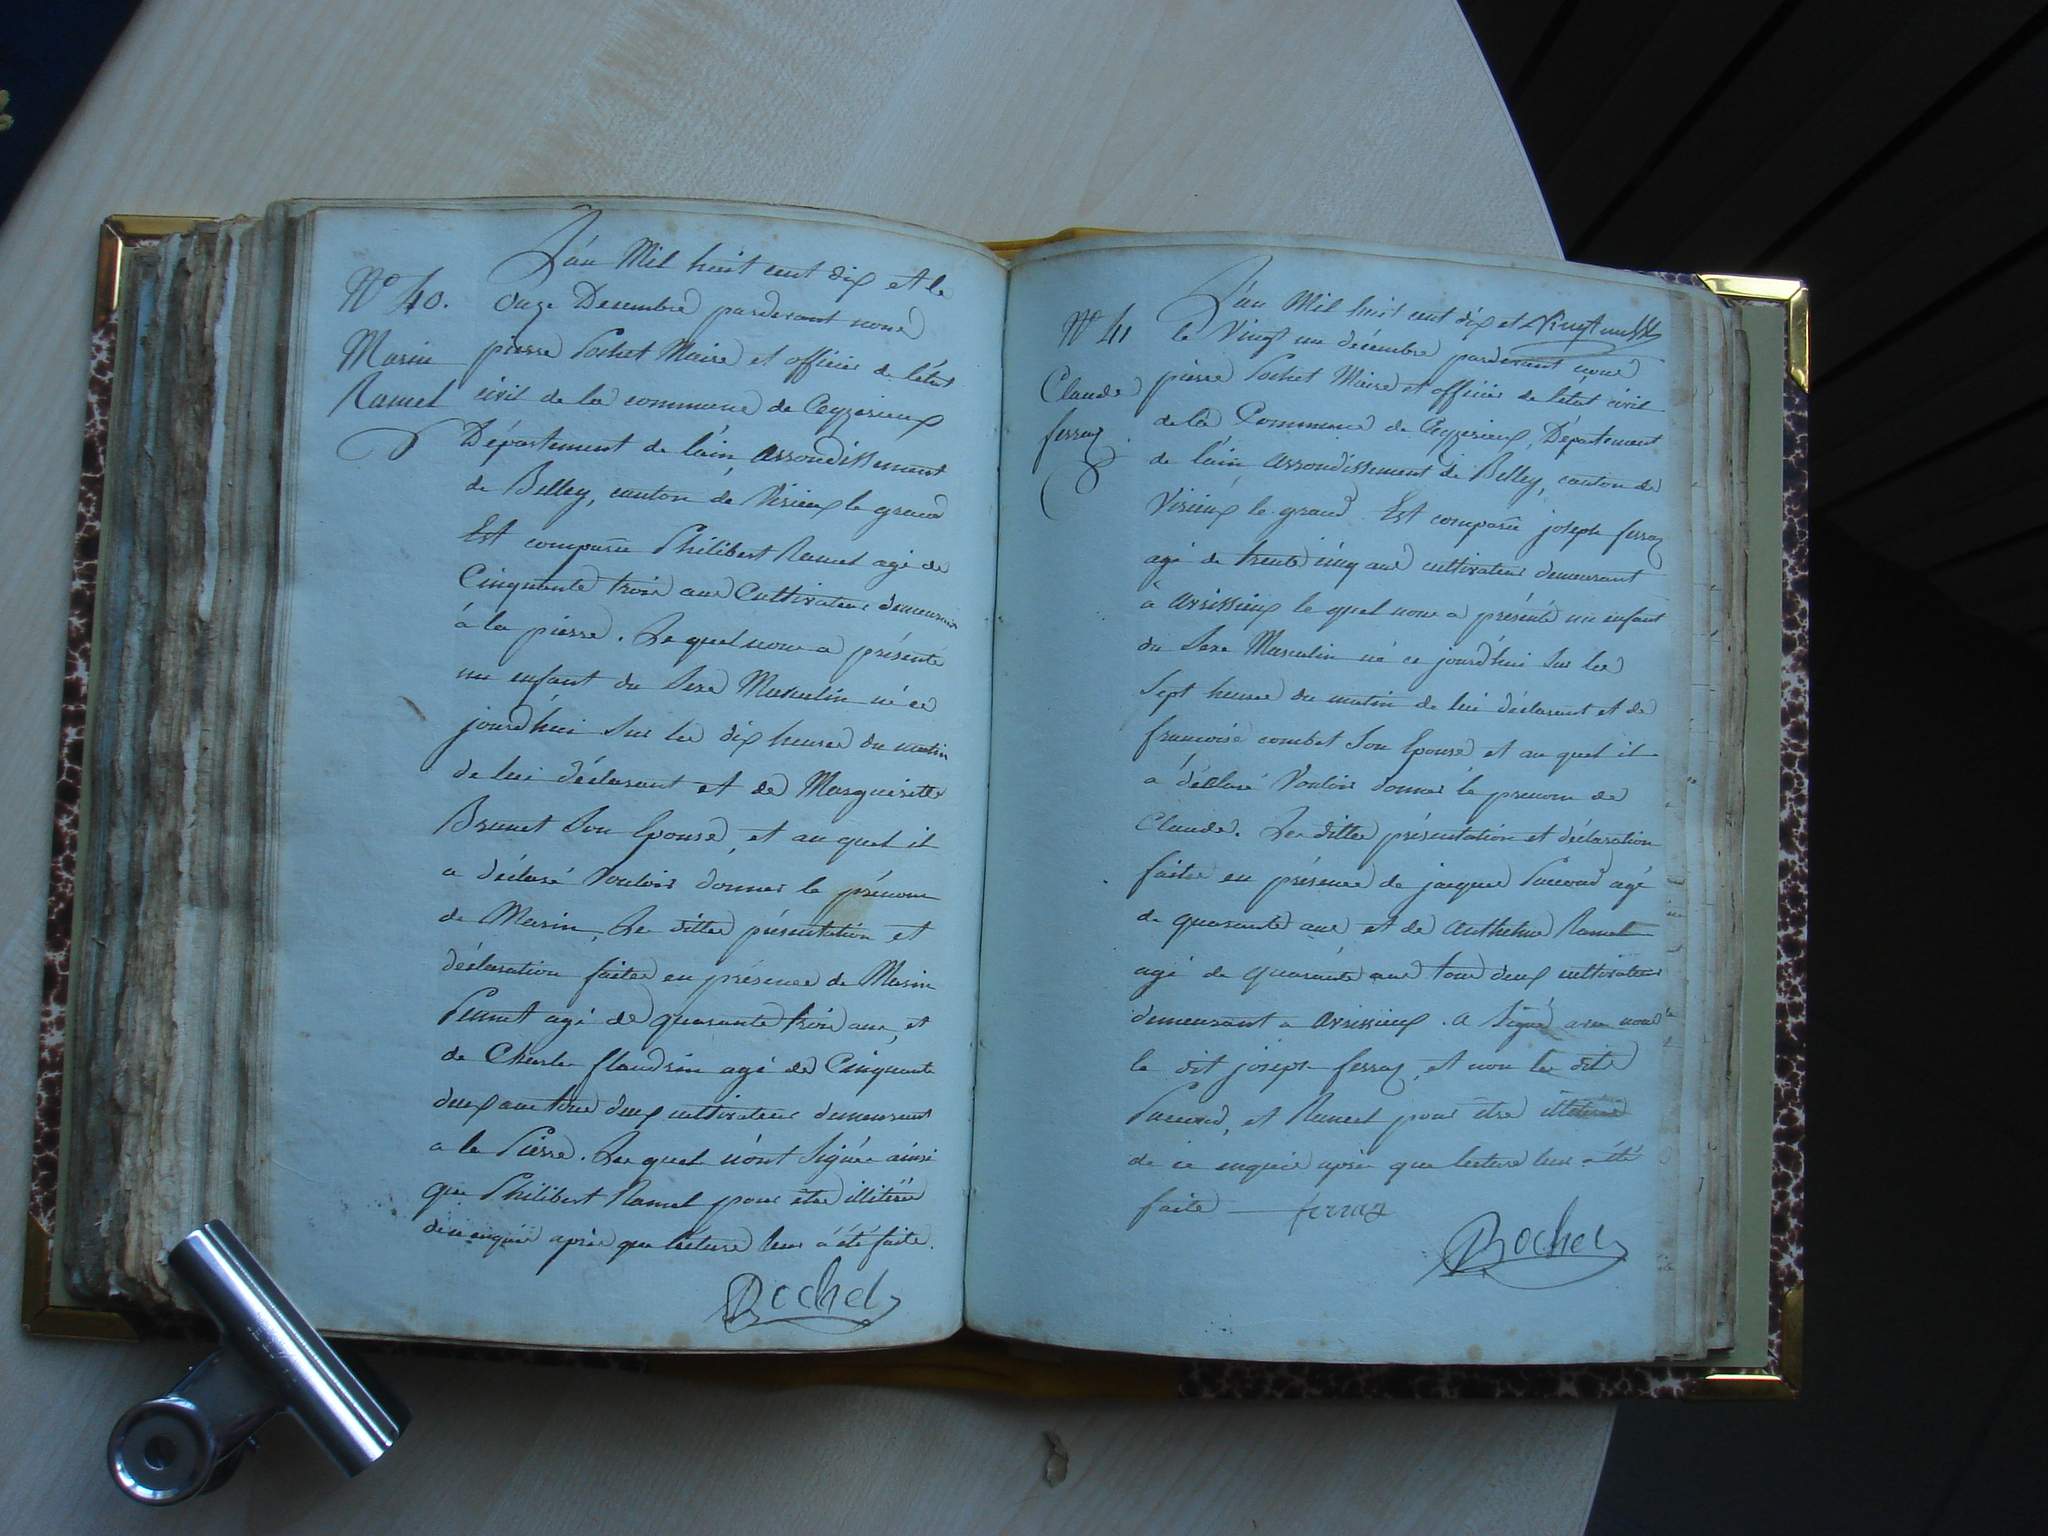 No 40.
Marin
Ramel
L'an Mil huit cent dix et le
Onze Decembre pardevant nous
pierre Pochet Maire et officier de l'état
civil de la commune de Ceyzerieux
Département de l'ain, arrondissement
de Belley, canton de Virieux le grand
Est comparu Philibert Ramel agé de
Cinquante trois ans Cultivateur demeurant
à la pierre. Le quel nous a présenté
un enfant du Sexe Masculin né ce
jourd'hui Sur les dix heures du matin
de lui déclarant et de Margueritte
Brunet Son Epouse, et au quel il
a déclaré Vouloir donner le prénom
de Marin, Les dittes présentation et
déclaration faites en présence de Marin
agé de quarante trois ans, et
de Charles flandrin agé de Cinquante
deux ans tous deux cultivateurs demeurant
a la Pierre. Les quels n'ont Signés ainsi
que Philibert Ramel pour être illitérés
de ce enquis après que lecture leur a été faite.
Bochet
No 41
Claude
ferraz
L'an Mil huit cent dix et
le Vingt un décembre pardevant nous
pierre Pochet Maire et officier de l'état civil
de la Commune de Ceyzerieux, Département
de l'ain arrondissement de Belley, canton de
Virieux le grand. Est comparu joseph ferraz
agé de trente cinq ans cultivateur demeurant
à avrissieux le quel nous a présenté un enfant
du Sexe Masculin né ce jourd'hui Sur les
Sept heures du matin de lui déclarant et de
francoise combet Son Epouse, et au quel il
a déclaré Vouloir donner le prenom de
Claude. Les dittes présentation et déclaration
faites en présence de jacques Paccoud agé
de quarante ans et de anthelme Ramel
agé de quarante ans tous deux cultivateurs
demeurant a avrissieux. a Signé avec nous
le dit joseph ferraz, et non les dits
Paccoud, et Ramel pour être illitérés
de ce enquis après que lecture leur a été
faite ferraz
Bochet